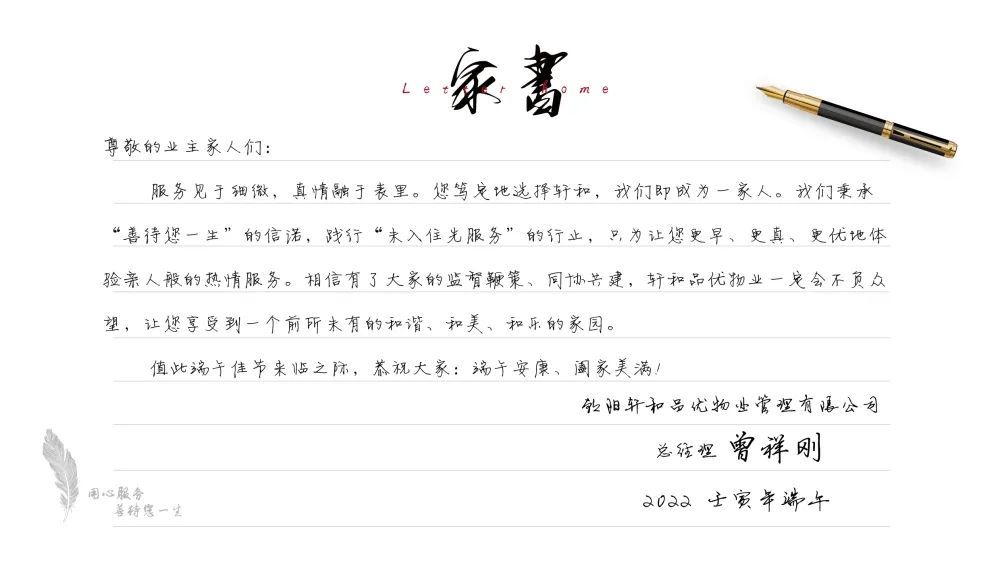 家書
Letter home
尊敬的业主家人们：
服务见于细微，真情融于表里。您笃定地选择轩和，我们即成为一家人。我们秉承
“善待您一生”的信诺，践行“未入住先服务”的行业，只为让您更早、更真、更优地体
验亲人般的热情服务。相信有了大家的监督鞭策、同协共建，轩和品优物业一定会不负众
望，让您享受到一个前所未有的和谐、和美、和乐的家园。
值此端午佳节来临之际，恭祝大家：端午安康、阖家美满！
阳轩和品优物业管理有限公司
总经理 曾祥刚
2022 壬寅年端午
用心服务
善待您一生